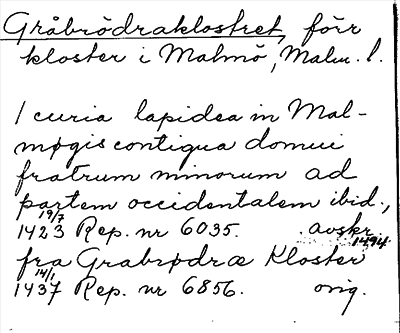 Gråbrödraklostret, förr
kloster i Malmö, Malm. l.
1 curia lapidea in Mal-
møgis contigua domui
fratrum minorum ad
partem occidentalem ibid.,
19/7
1423 Rep. nr 6035. avskr. 1494.
fra Grabrødræ Kloster
14/1
1437 Rep. nr 6856. orig.